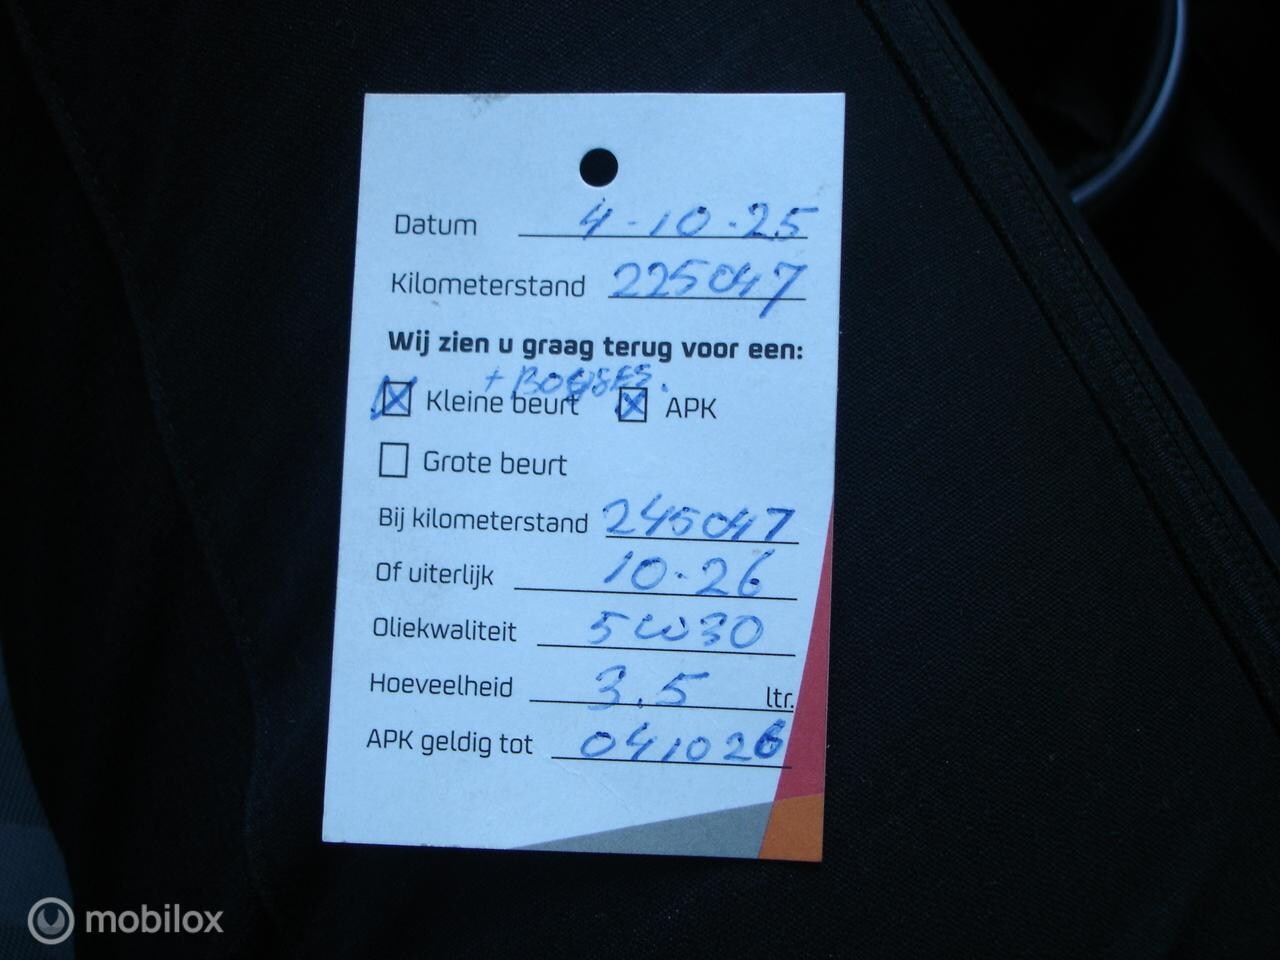 Datum 4-10-25
Kilometerstand 225047
Wij zien u graag terug voor een:
+ BOUGIES.
Kleine beurt APK
Grote beurt
Bij kilometerstand 245047
Of uiterlijk 10-26
Oliekwaliteit 5W30
Hoeveelheid 3.5 ltr.
APK geldig tot 041026
mobilox